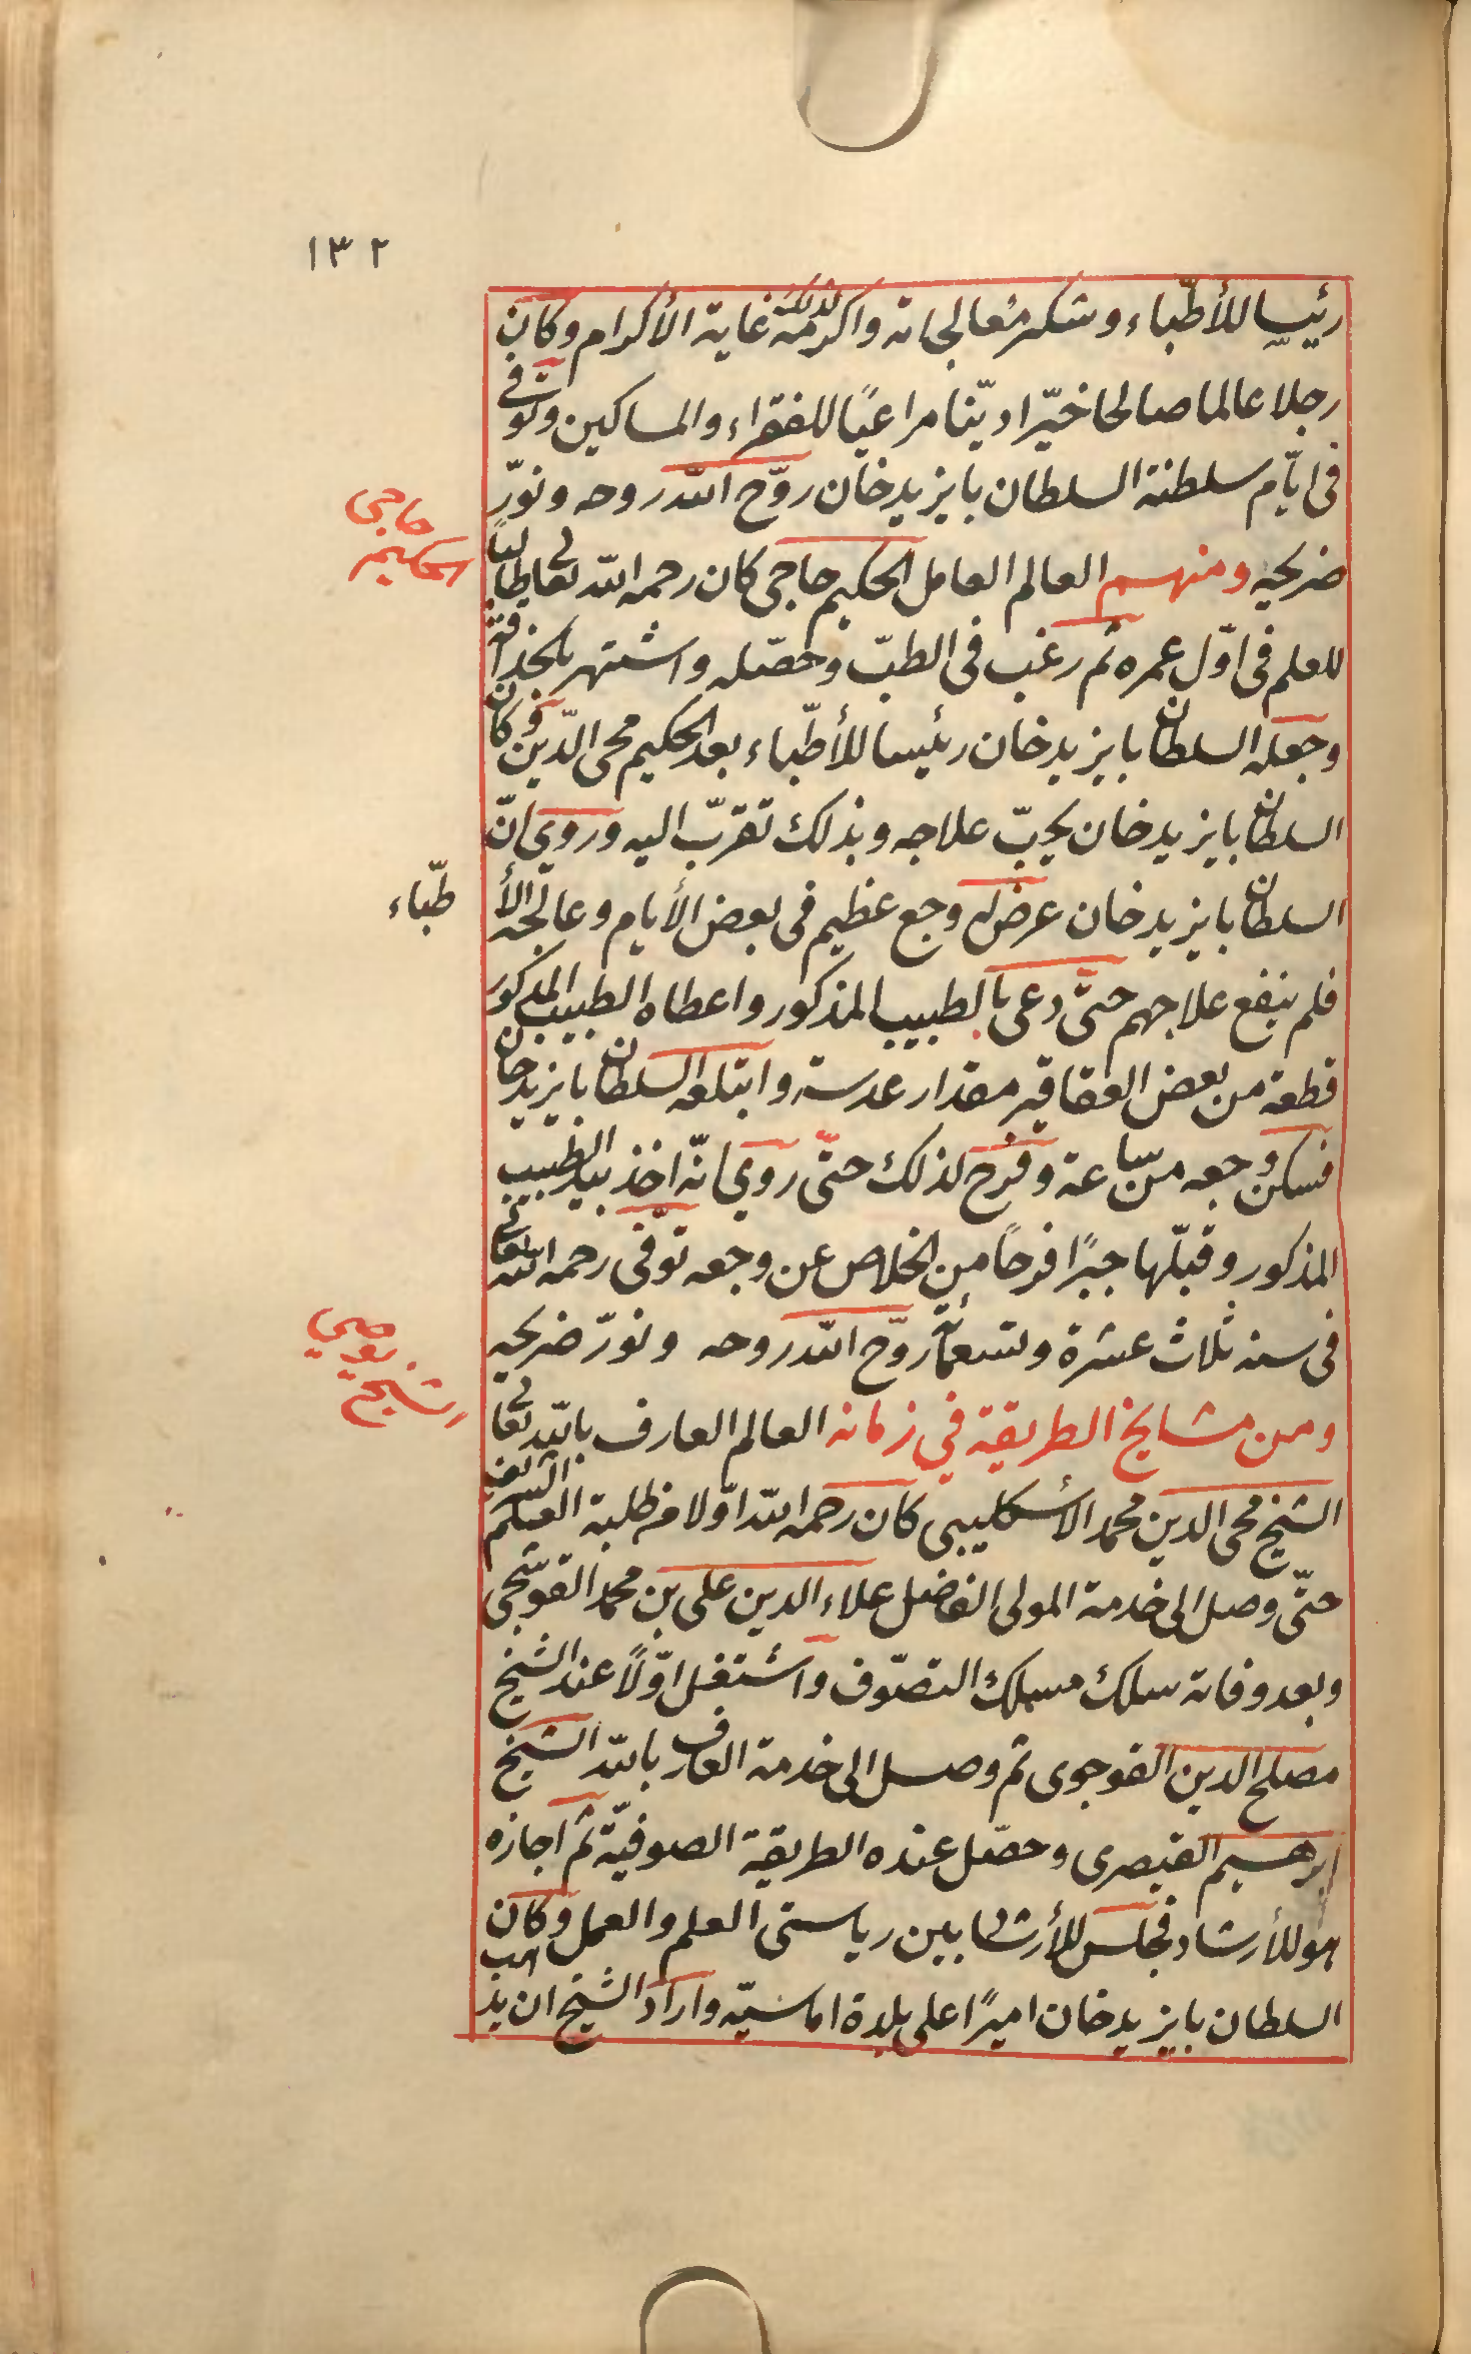 ١٣٢
رئيسا للأطبّاء وشكر معالجاته واكرمه لذلك غاية الأكرام وكان
رجلا عالما صالحا خيّرا ديّنا مراعيًا للفقراء والمساكين وتوفى
فى ايّام سلطنة السلطان بايزيدخان روّح الله روحه ونوّر
ضريحه ومنهم العالم العامل الحكيم حاجى كان رحمه الله تعالى طالبًا
حاجى
الحكيم
للعلم فى اوّل عمره ثم رغب فى الطبّ وحصّله واشتهر بالحذاقة
وجعله السلطان بايزيدخان رئيسا للأطبّاء بعد الحكيم محى الدّين وكان
السلطان بايزيدخان يحبّ علاجه وبذلك تقرّب اليه وروى انّ
السلطان بايزيدخان عرض له وجع عظيم فى بعض الأيام وعالجه الأ
طبّاء
فلم ينفع علاجهم حتّى دعى بالطبيب المذكور واعطاه الطبيب المذكور
قطعة من بعض العقاقير مقدار عدسة وابتلعه السلطان بايزيدخان
فسكن وجعه من ساعة وفرح لذلك حتّى روى انّه اخذ بيد الطبيب
المذكور وقبّلها جبرًا فرحًا من الخلاص عن وجعه توفّى رحمه الله تعالى
فى سنه ثلاث عشرة وتسعمائة روّح الله روحه ونورّ ضريحه
ومن مشايخ الطريقة في زمانه العالم العارف بالله تعالى
يوصي
الشيخ
الشيخ محى الدين محمد الأسكليبى كان رحمه الله اوّلا من طلبة العلم الشريف
حتّى وصل الى خدمة المولى الفاضل علاء الدين على بن محمد القوشجى
وبعد وفاته سلك مسلك التصّوف واشتغل اوّلاً عند الشيخ
مصلح الدين القوجوى ثم وصل الى خدمة العارف بالله الشيخ
ابرهيم القيصرى وحصّل عنده الطريقة الصوفيّة ثم اجازه
هو للأرشاد فجلس للأرشاد بين رياستى العلم والعمل وكان
السلطان بايزيدخان اميرًا على بلدة اماسيّه واراد الشيخ ان يذهب